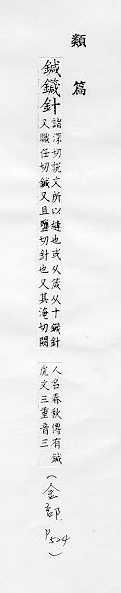 類篇
鍼鑯針
諸深切說文所以縫也或从箴从十鍼針
又職任切鍼又且鹽切針也又其淹切闕
人名春秋傳有鍼
虎文三重音三
(金部 P.524)